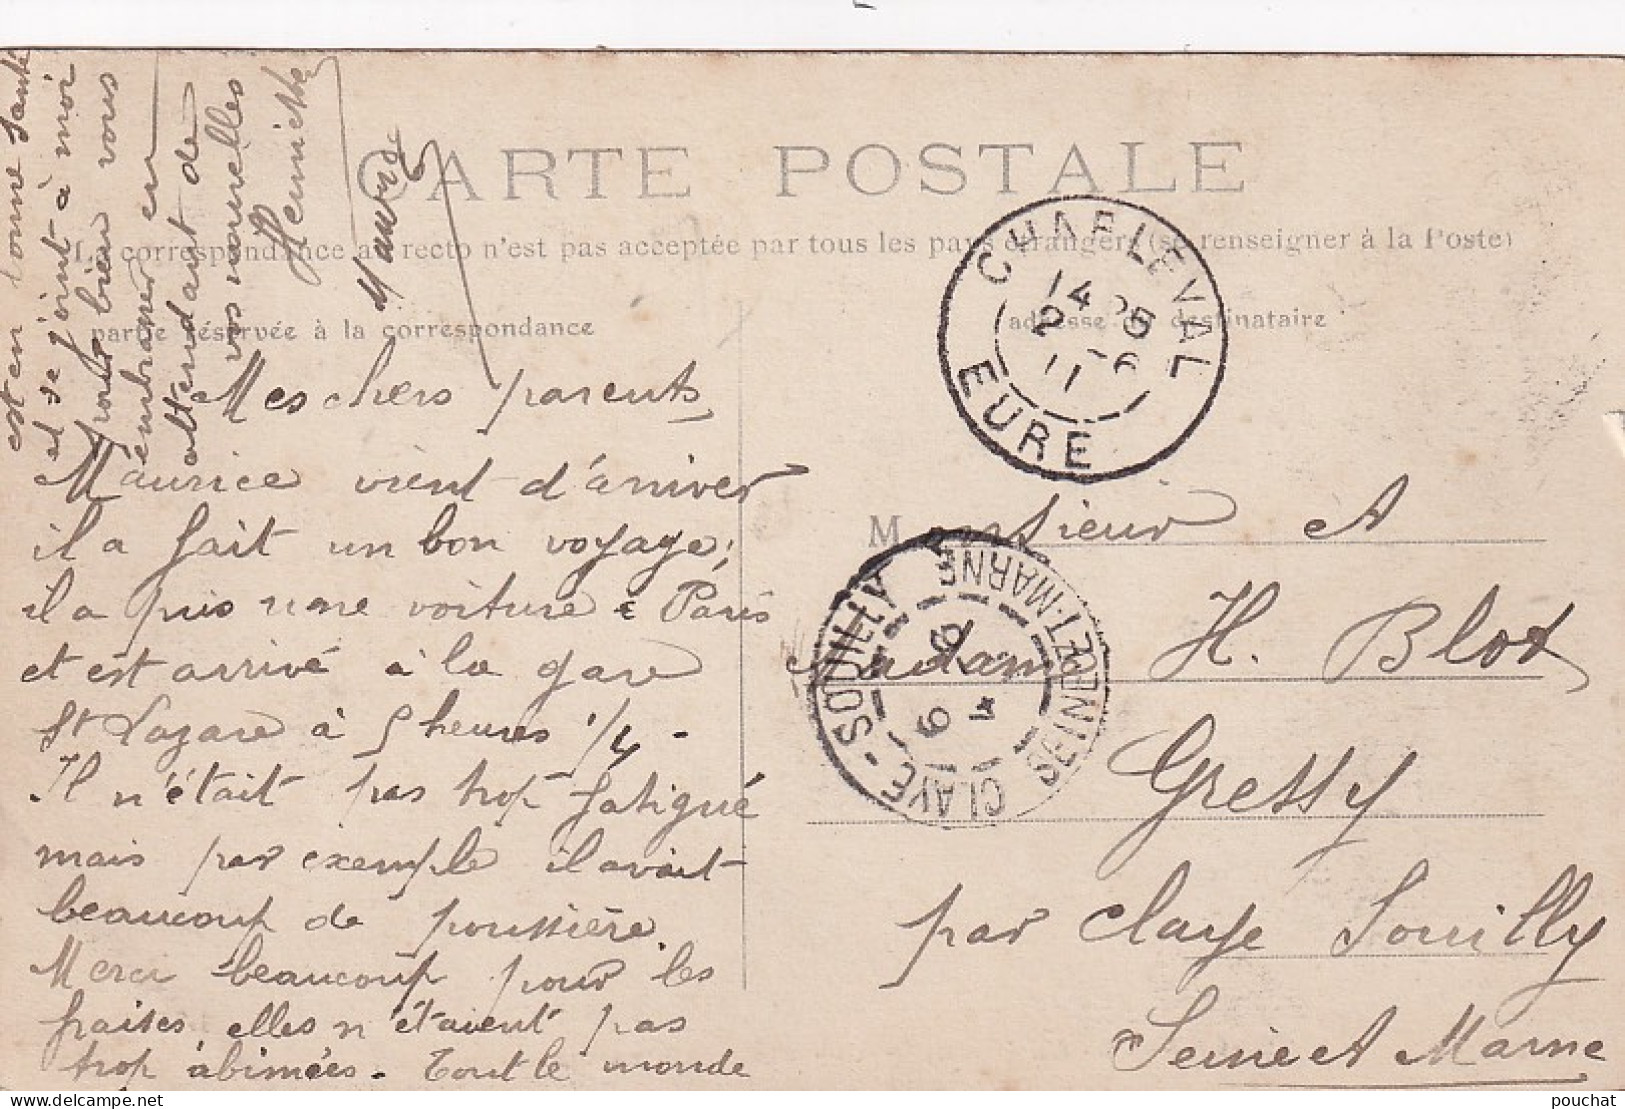 CARTE POSTALE
La correspondance au recto n'est pas acceptée par tous les pays étrangers (se renseigner à la Poste)
partie réservée à la correspondance
adresse du destinataire
Mes chers parents
Maurice vient d'arriver
il a fait un bon voyage;
il a pris une voiture à Paris
et est arrivé à la gare
St Lazare à 5 heures 1/4 -
Il n'était pas trop fatigué
mais par exemple il avait
beaucoup de poussière.
Merci beaucoup pour les
fraises elles n'étaient pas
trop abimées - Tout le monde
est en bonne santé
et se joint à moi
pour bien vous
embrasser en
attendant de
vos nouvelles
Henriette
Maurice
CHARLEVAL
14 35
2 -6
11
EURE
Monsieur et
Madame H. Blot
Gressy
par Claye Souilly
Seine et Marne
CLAYE-SOUILLY
SEINE-ET-MARNE
pouchat